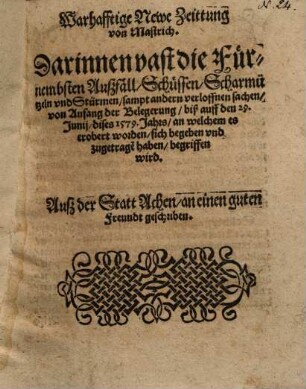 N. 24.
Warhafftige Newe Zeittung
von Mastrich.
Darinnen vast die Für-
nembsten Außfäll/ Schüssen/ Scharmü
tzeln vnd Stürmen/ sampt andern verloffnen sachen/
von Anfang der Belegerung/ biß auff den 29.
Junij/ dises 1579. Jahrs/ an welchem es
erobert worden/ sich begeben vnd
zugetragē haben/ begriffen
wird.
Auß der Statt Achen/ an einen guten
Freundt geschriben.